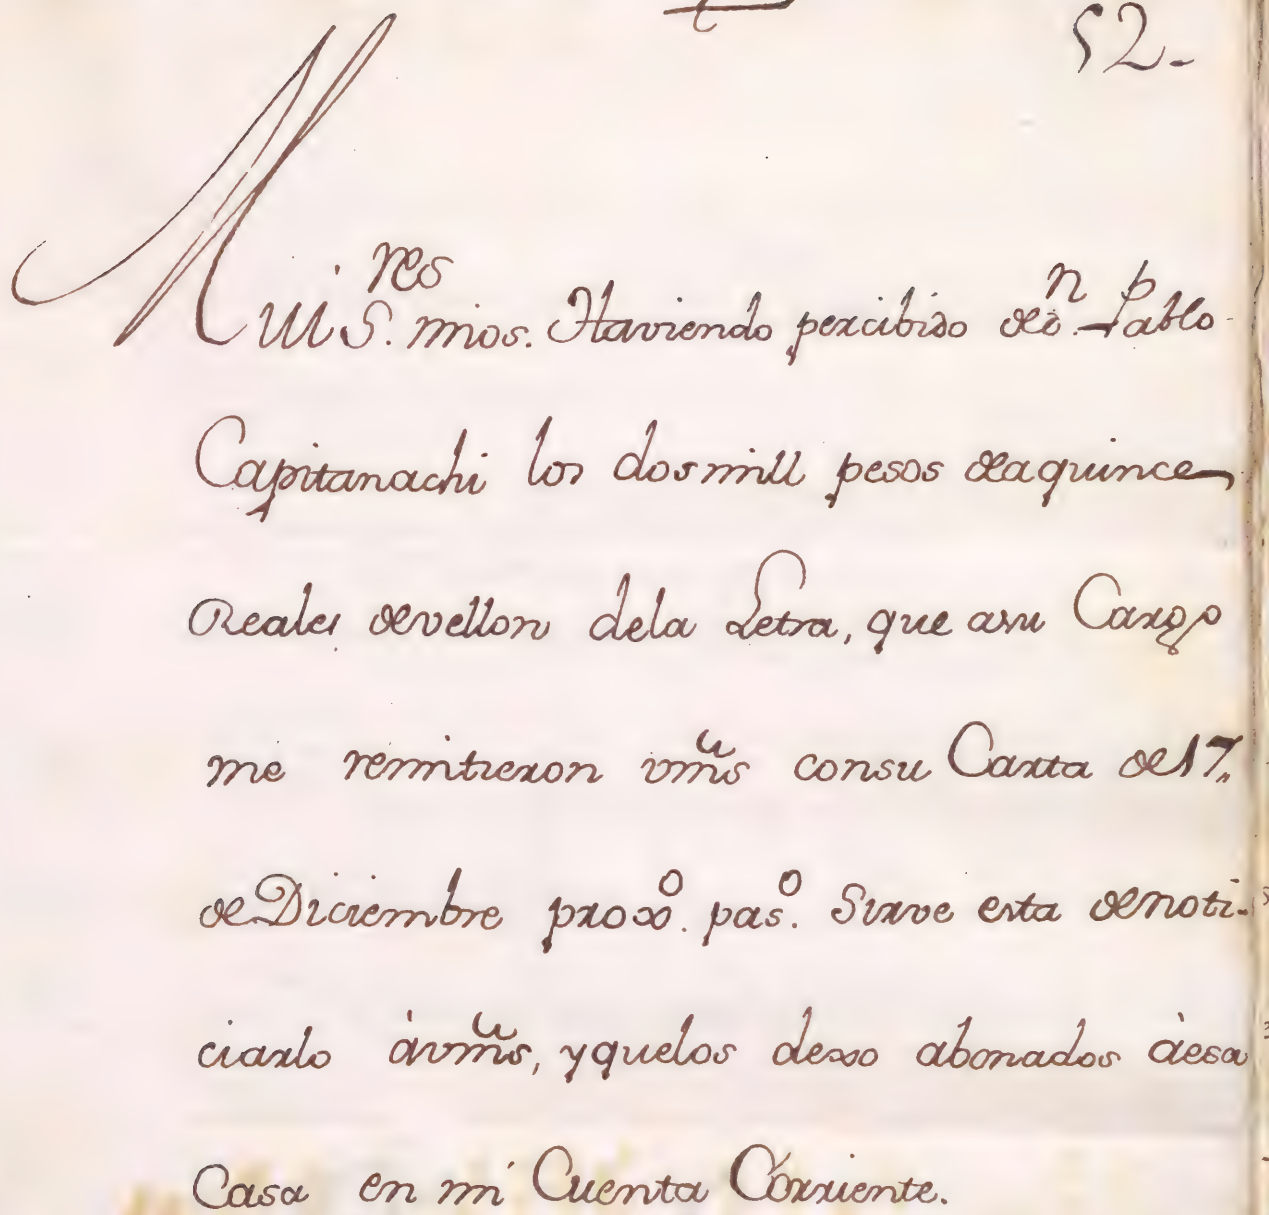 52.
Mui S.res mios. Haviendo percibido de D.n Pablo
Capitanachi los dos mill pesos deaquince
Reales devellon dela Letra, que asu Cargo
me remitieron vm̃s consu Carta de 17,,
de Diciembre prox.o pas.o Sirve esta denoti-
ciarlo àvm̃s, yquelos dexo abonados àesa
Casa en mi Cuenta Corriente.